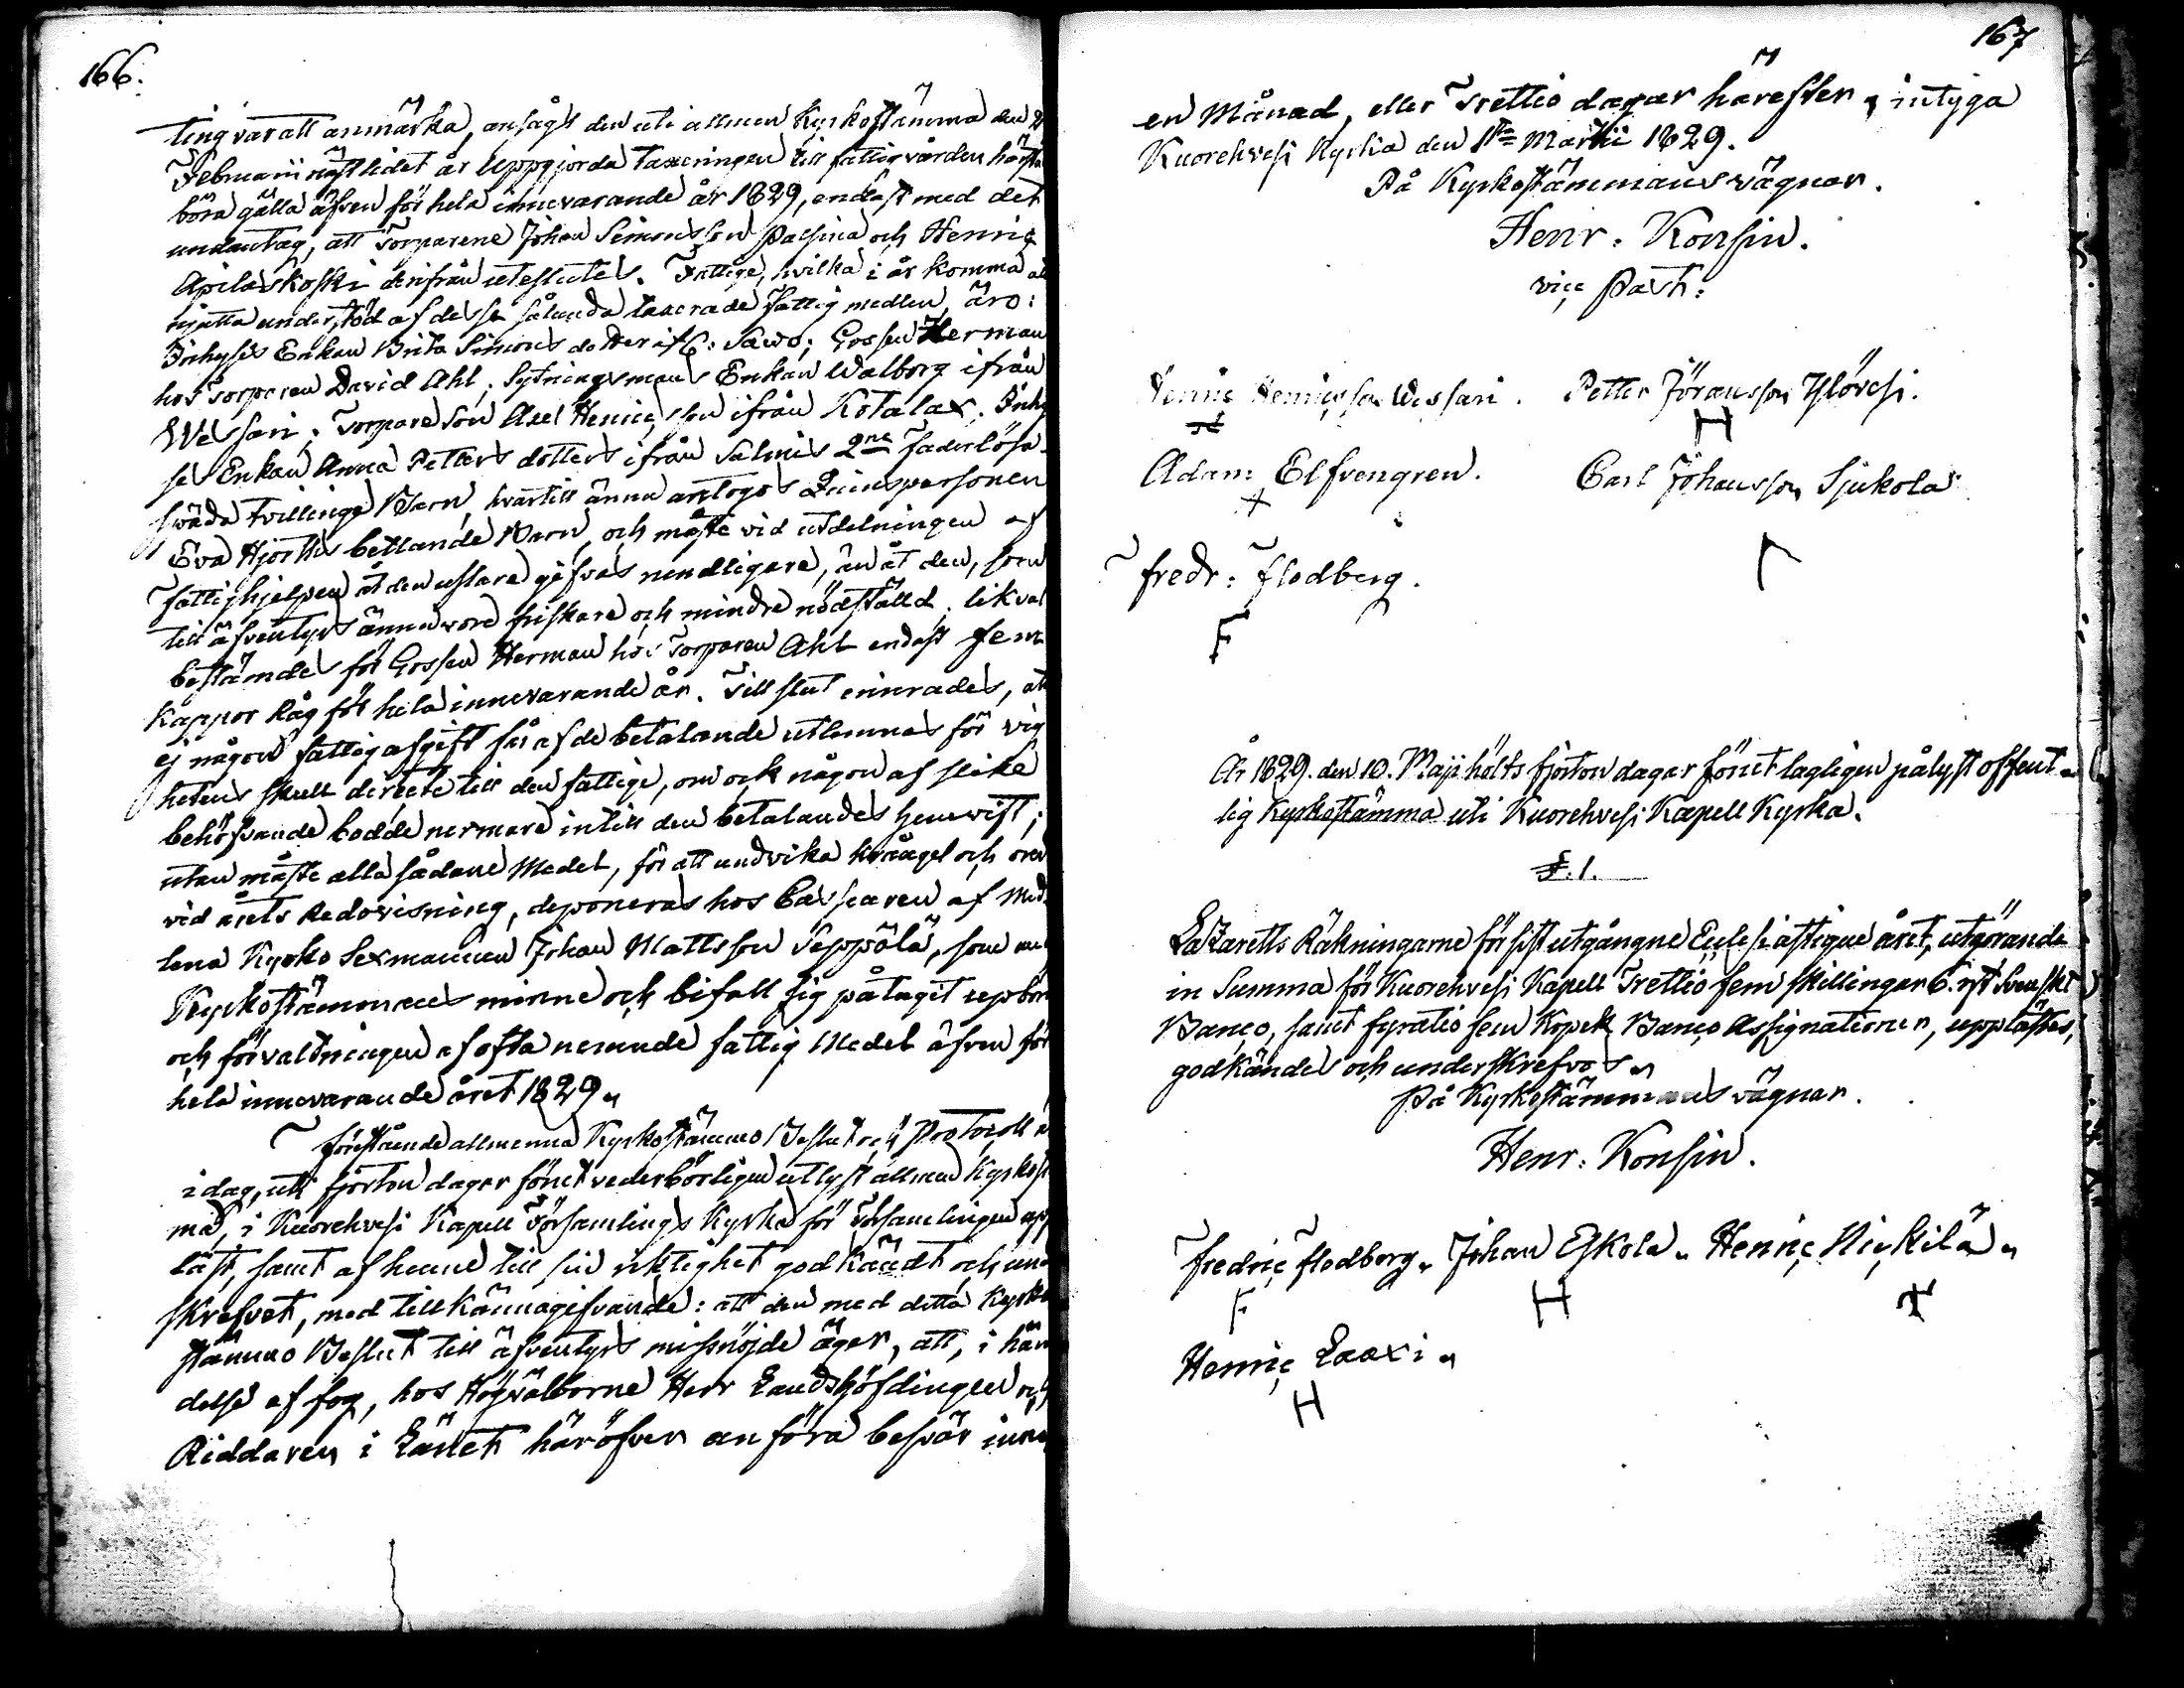 166.
ting var att anmärka, ansågs den uti allmen Kyrkostämma den
Februarii näst lidet år Uppgjorda taxeringen till fattigvården
böra gälla äfven för hela innevarande år 1829, endast med det
undantag, att Torparene Johan Simonsson Palsina och Henric
Apilaskoski derifrån uteslutes. Fattige, hvilka i år komma
njutta understöd af desse sålunda taxerade fattig medlen, äro:
Inhyses Enkan Brita Simons dotter if: Sawo; Gossen Herman
hos Torparen David Ahl; Sytningsmans Enkan Walborg ifrån
Wessari; Torpare Son Axel Henricsson ifrån Kotalax. Inhy
ses Enkan Anna Petters dotters ifrån Salmis 2ne Faderlösa
späda Tvillinge Barn, hvartill ännu antogos Quinspersonen
Eva Hjorthis bettande Barn, och måste vid utdelningen af
Fattighjelpen åt den uslare gifvas rundligare, än åt den, som
till äfventyrs ännu vore friskare och mindre nödställd. likväl
bestämdes för Gossen Herman hos Torparen Ahl endast fem
Kappor Råg för hela innevarande år. Till slut erinrades, att
ej någon fattigafgift får af de betalande utlemnas för vig
hetens skull directe till den fattige, om ock någon af slike
behöfvande bodde närmare intill den betalandes hemvist;
utan måste alla sådane Medel, för att undvika krångel och
vid årets Redovisning, deponeras hos Casseuren af
lena Kyrko Sexmannen Johan Mattsson Seppälä, som
Kyrkostämmans minne och bifall sig påtagit uppbör
och förvaltningen af ofta nemnde fattig Medel äfven för
hela innevarande året 1829.
Förestående allmenna Kyrkostämmo Beslut och Protocoll
i dag, uti fjorton dagar förut vederbörligen utlyst allmen Kyrkost
ma, i Kuorehvesi Kapell Församlings Kyrka för Församlingen upp
läst, samt af henne till sin riktighet godkändt och und
skrefvet, med tillkännagifvande: att den med detta Kyrko
stämmo Beslut till äfventyrs missnöjde äger, att, i hän
delse af fog, hos Högvälborne Herr Landshöfdingen och
Riddaren i Länet häröfver anföra besvär inom
167
en Månad, eller Trettio dagar härefter, intyga
Kuorehvesi Kyrka den 1sta Martii 1829.
På Kyrkostämmans vägnar.
Henr: Konsin.
viçe Past:
Henric Henricsson Wessari. Petter Jöransson Ylövesi.
H
Adam Elfvengren. Carl Johansson Sjukola
+
Fredr: Flodberg.
F
År 1829. den 10. Maji hölts fjorton dagar förut lagligen pålyst offent-
lig Kyrkostämma uti Kuorehvesi Kapell Kyrka.
§. 1.
Lazaretts Räkningarne för sist utgångne Ecclesiastique året, utgörande
in Summa för Kuorehvesi Kapell Trettio fem skillingar 6. rst Svenskt
Banco, samt fyratio fem Kopek Banco Assignationer, upplästes,
godkändes och underskrefvos.
På Kyrkostämmans vägnar.
Henr: Konsin.
Fredric Flodberg. Johan Eskola. Henric Nickilä.
F H +
Henric Laaxi.
H